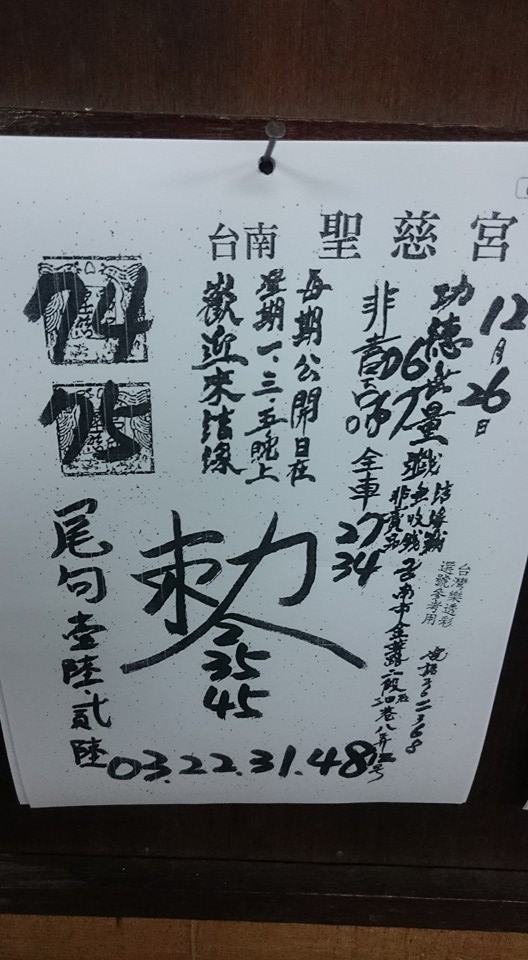 台南 聖慈宮
12月26日
功德無量
非賣品
全車
27
34
結緣籤
無收錢
非賣品
台灣樂透彩
選號參考用
每期公開日在
星期一、三、五晚上
歡迎來結緣
74
75
敕令
35
45
尾句壹陸.貳陸
03.22.31.48